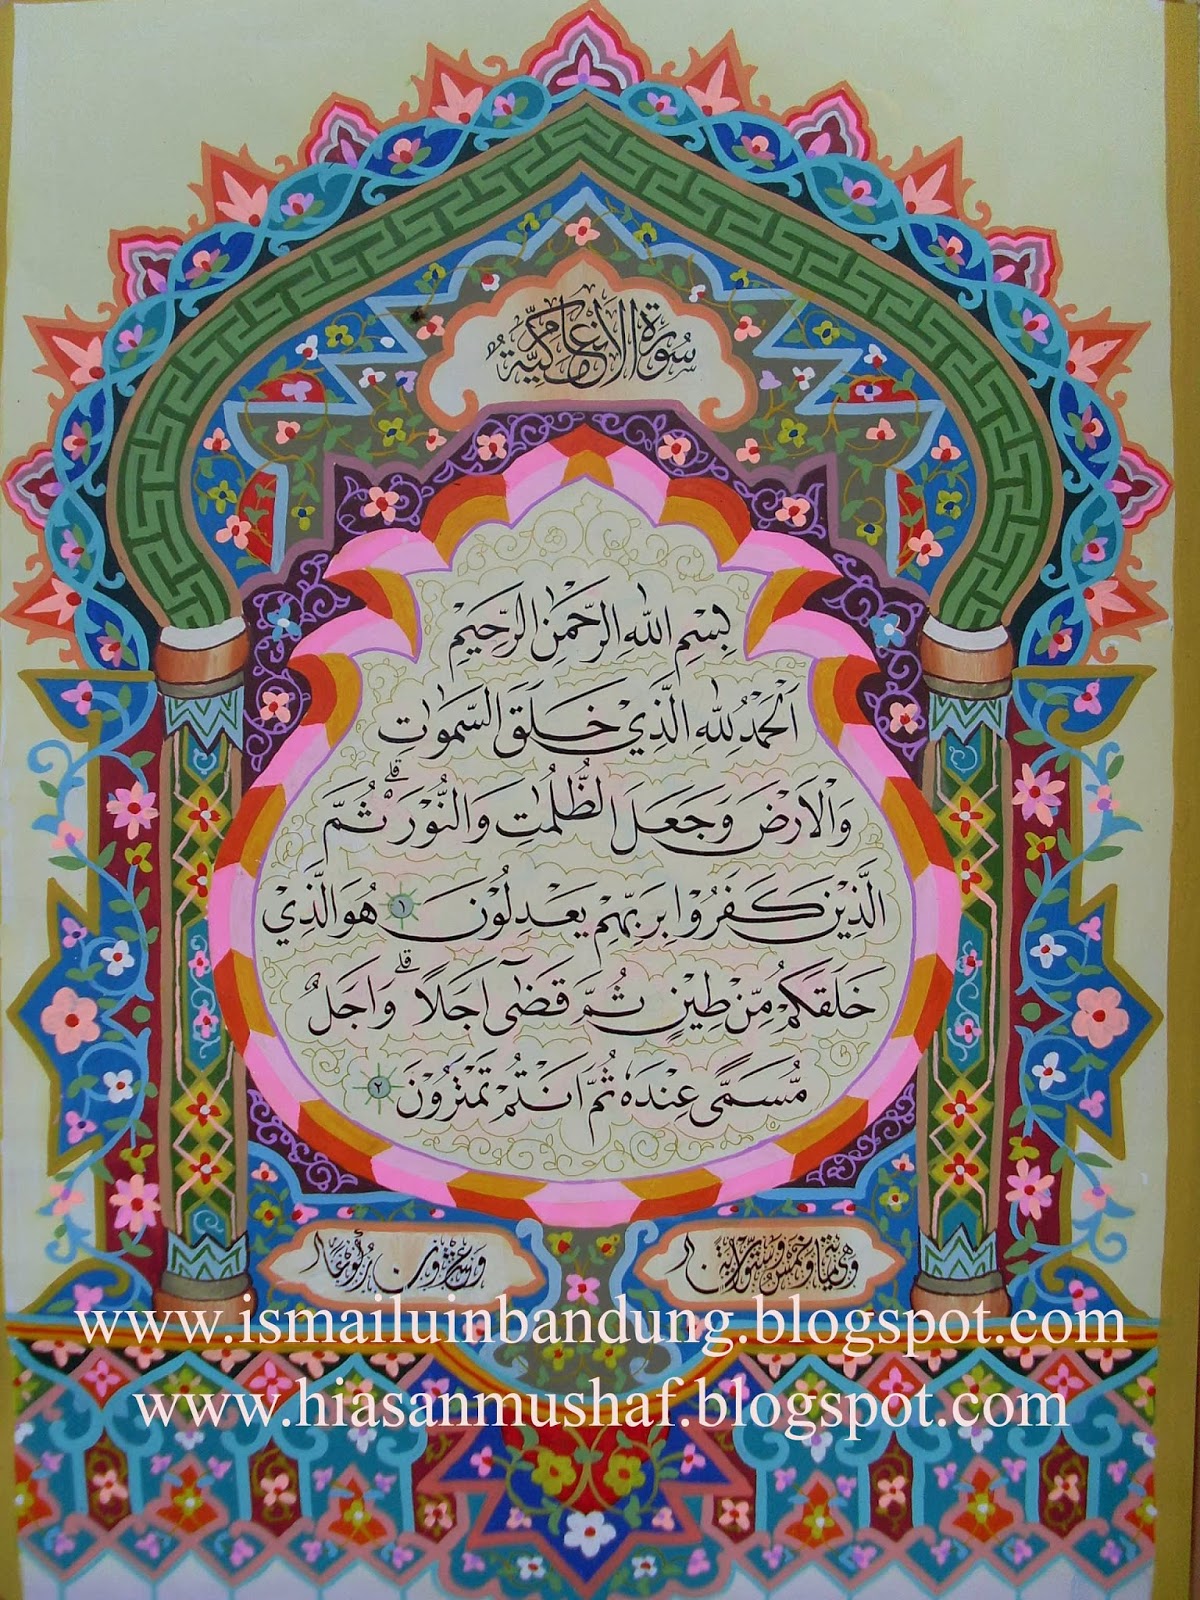 سُورَةُ الْأَنْعَامِ مَكِّيَّةٌ
بِسْمِ اللّٰهِ الرَّحْمٰنِ الرَّحِيْمِ
اَلْحَمْدُ لِلّٰهِ الَّذِيْ خَلَقَ السَّمٰوٰتِ
وَالْاَرْضَ وَجَعَلَ الظُّلُمٰتِ وَالنُّوْرَ ۗ ثُمَّ
الَّذِيْنَ كَفَرُوْا بِرَبِّهِمْ يَعْدِلُوْنَ ١ هُوَ الَّذِيْ
خَلَقَكُمْ مِّنْ طِيْنٍ ثُمَّ قَضٰٓى اَجَلًا ۗ وَاَجَلٌ
مُّسَمًّى عِنْدَهٗ ثُمَّ اَنْتُمْ تَمْتَرُوْنَ ٢
وَهِيَ مِائَةٌ وَخَمْسٌ وَسِتُّوْنَ اٰيَةً
وَعِشْرُوْنَ رُكُوْعًا
www.ismailuinbandung.blogspot.com
www.hiasanmushaf.blogspot.com